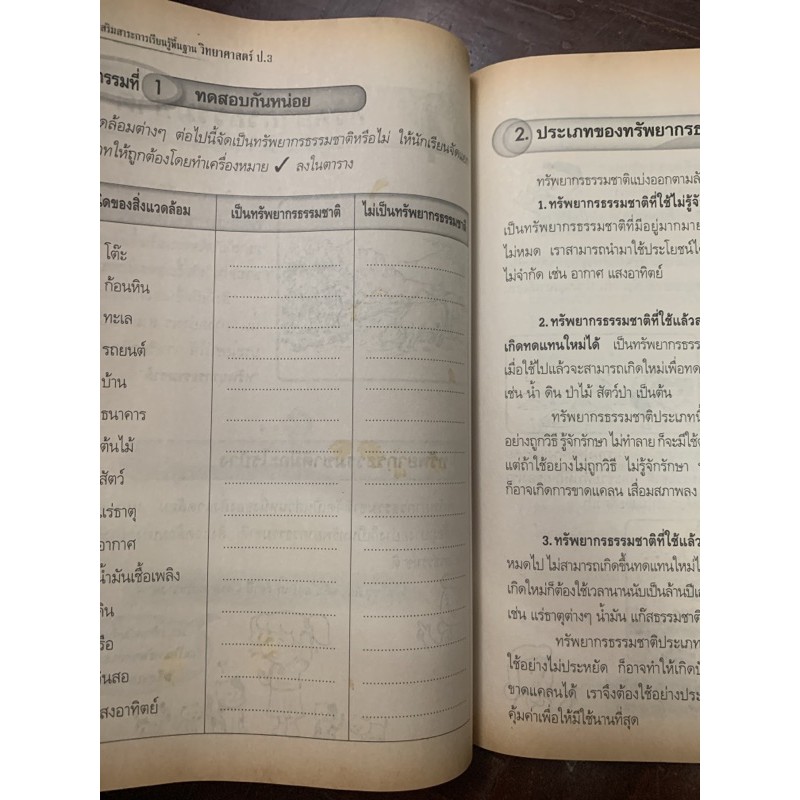 สริมสาระการเรียนรู้พื้นฐาน วิทยาศาสตร์ ป.3
กรรมที่ 1 ทดสอบกันหน่อย
ดล้อมต่างๆ ต่อไปนี้จัดเป็นทรัพยากรธรรมชาติหรือไม่ ให้นักเรียนจัด
ภทให้ถูกต้องโดยทำเครื่องหมาย ✓ ลงในตาราง
นิดของสิ่งแวดล้อม เป็นทรัพยากรธรรมชาติ ไม่เป็นทรัพยากรธรรมชาติ
โต๊ะ
ก้อนหิน
ทะเล
รถยนต์
บ้าน
ธนาคาร
ต้นไม้
สัตว์
แร่ธาตุ
อากาศ
น้ำมันเชื้อเพลิง
ดิน
รือ
นสอ
สงอาทิตย์
2. ประเภทของทรัพยากรธ
ทรัพยากรธรรมชาติแบ่งออกตามลั
1. ทรัพยากรธรรมชาติที่ใช้ไม่รู้จั
เป็นทรัพยากรธรรมชาติที่มีอยู่มากมาย
ไม่หมด เราสามารถนำมาใช้ประโยชน์ได
ไม่จำกัด เช่น อากาศ แสงอาทิตย์
2. ทรัพยากรธรรมชาติที่ใช้แล้วส
เกิดทดแทนใหม่ได้ เป็นทรัพยากรธรร
เมื่อใช้ไปแล้วจะสามารถเกิดใหม่เพื่อทด
เช่น น้ำ ดิน ป่าไม้ สัตว์ป่า เป็นต้น
ทรัพยากรธรรมชาติประเภทนี้
อย่างถูกวิธี รู้จักรักษา ไม่ทำลาย ก็จะมีใช้
แต่ถ้าใช้อย่างไม่ถูกวิธี ไม่รู้จักรักษา
ก็อาจเกิดการขาดแคลน เสื่อมสภาพลง
3. ทรัพยากรธรรมชาติที่ใช้แล้ว
หมดไป ไม่สามารถเกิดขึ้นทดแทนใหม่ไ
เกิดใหม่ก็ต้องใช้เวลานานนับเป็นล้านปี
เช่น แร่ธาตุต่างๆ น้ำมัน แก๊สธรรมชาติ
ทรัพยากรธรรมชาติประเภท
ใช้อย่างไม่ประหยัด ก็อาจทำให้เกิด
ขาดแคลนได้ เราจึงต้องใช้อย่างประ
คุ้มค่าเพื่อให้มีใช้นานที่สุด